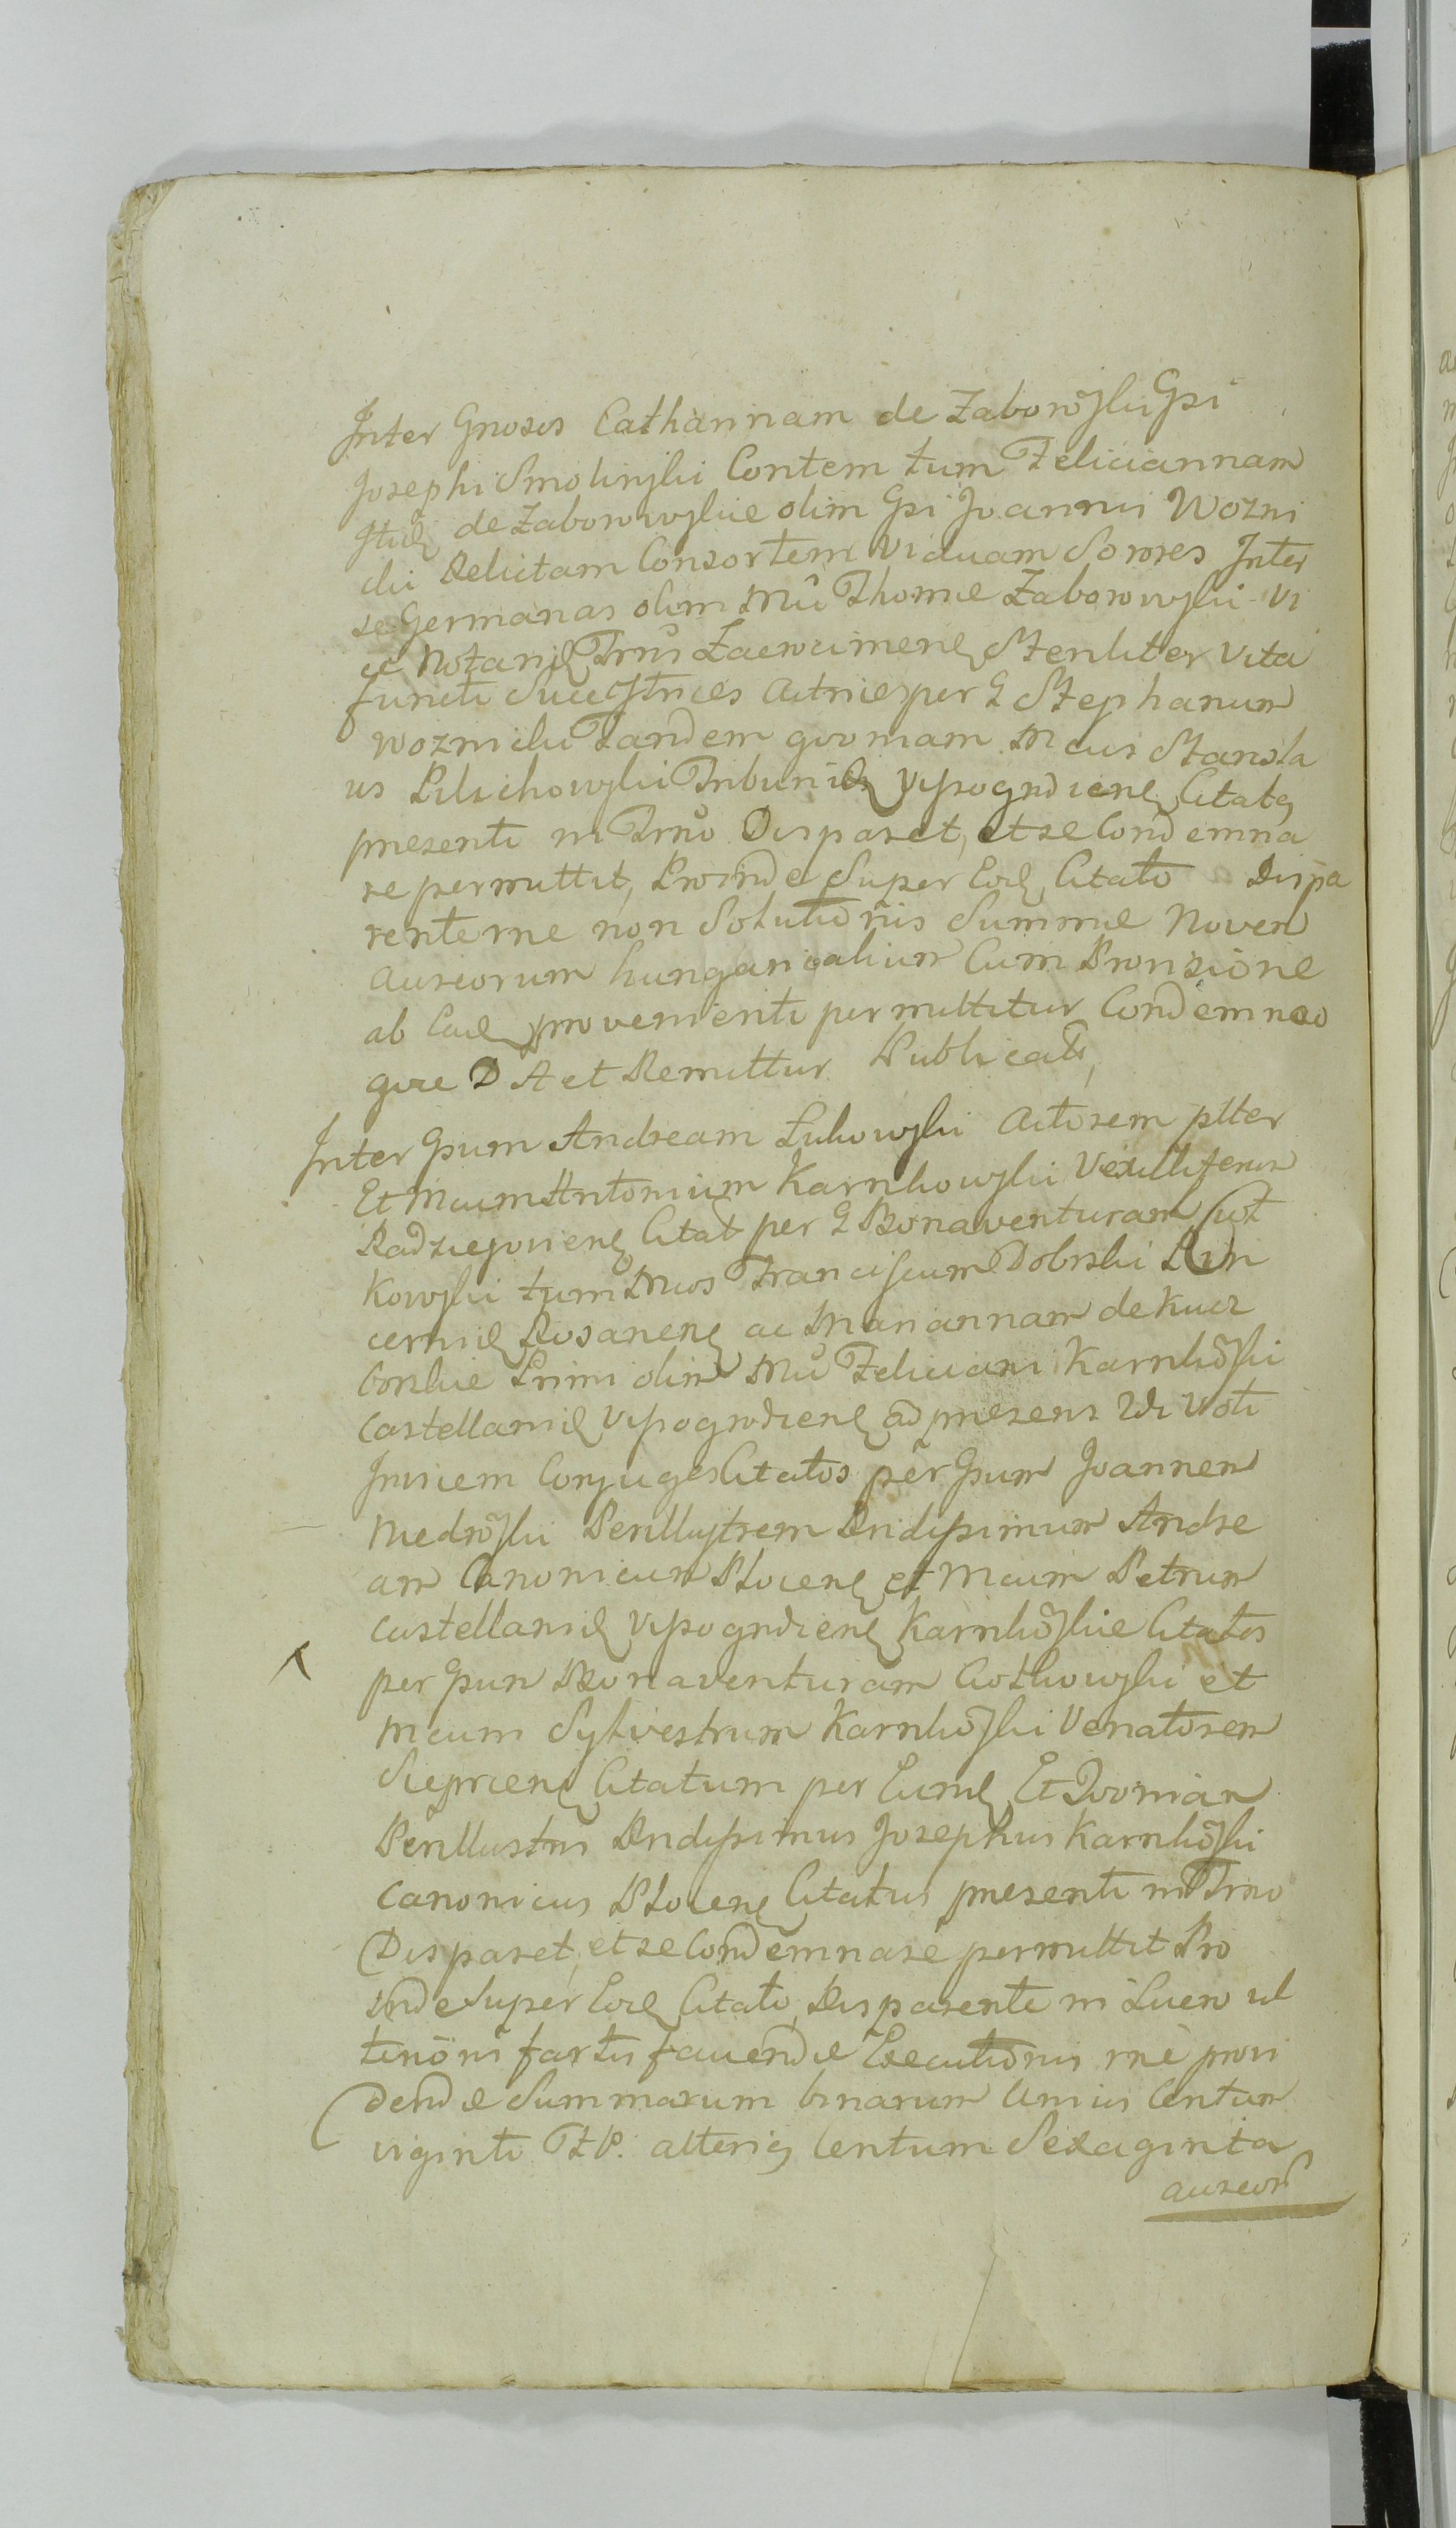 Inter Gnosos Catharinam de Zaborõwski Gsi
Josephi Smolinski Contem tum Feliciannam
de Zaborowskie olim Gsi Joannis Wozni
cki Relictam Consortem Viduam Sorores Inter
se Germanas olim Mci Thomæ Zaborowski Vi
ce Notarij Trris Zacrocimens Steriliter vita
functi Successtrices Actrices per G Stephanum
Woznicki Tandem qvoniam Mcus Stanisla
us Pilichowski Tribunid Vyssogrdiens Citatg
presenti in Trno Disparet, et se Condemna
re permittit, Proinde Super Eod Citato Dispa
rente rne non Solutionis Summæ Noven
Aureorum hungaricalium Cum Provisione
ab Ead provenienti permittitur Condemnao
qvæ D A et Remittur Publicati,
Inter Gsum Andream Lukowski Actorem plter
Et Mcum Antonium Karnkowski Vexilliferum
Radziejoviens Citat per G Bonaventuram Cot
kowski tum Mcos Franciscum Dobrski Pin
cernid Rosanens ac Mariannam de Kucz
borskie Primi olim Mci Feliciani Karnkõski
Castellanid Vyssogrodiens ad presens 2di Voti
Invicem Conjuges Citatos per Gsum Joannem
Niedrõski Perillustrem Rndissimum Andre
am Canonicum Plocens et Mcum Petrum
Castellanid Vyssogrdiens Karnkõskie Citatos
per Gsum Bonaventuram Cotkowski et
Mcum Sylvestrum Karnkõski Venatorem
Sieprcens Citatum per Eund Et Qvoniam
Perillustris Rndissimus Josephus Karnkõski
Canonicus Plocens Citatus presenti in Trno
Disparet, et se Condemnare permittit Pro
inde Super Eod Citato, Disparente in Lucro ul
terioris fartis faciendæ Executionis rne provi
dendæ Summarum binarum Unius Centum
viginti Tf. alterig Centum Sexaginta
aureor